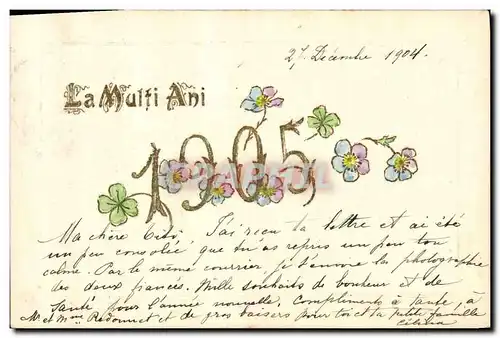 27 Décembre 1904.
La Mulți Ani
1905
Ma chère J'ai reçu ta lettre et ai été
un peu consolée que tu as repris un peu ton
calme. Par le même courrier je t'envoie la photographie
des deux fiancés. Mille souhaits de bonheur et de
santé pour l'année nouvelle. Compliments à Tante, à
Mr et Mme et de gros baisers pour toi et ta petite famille